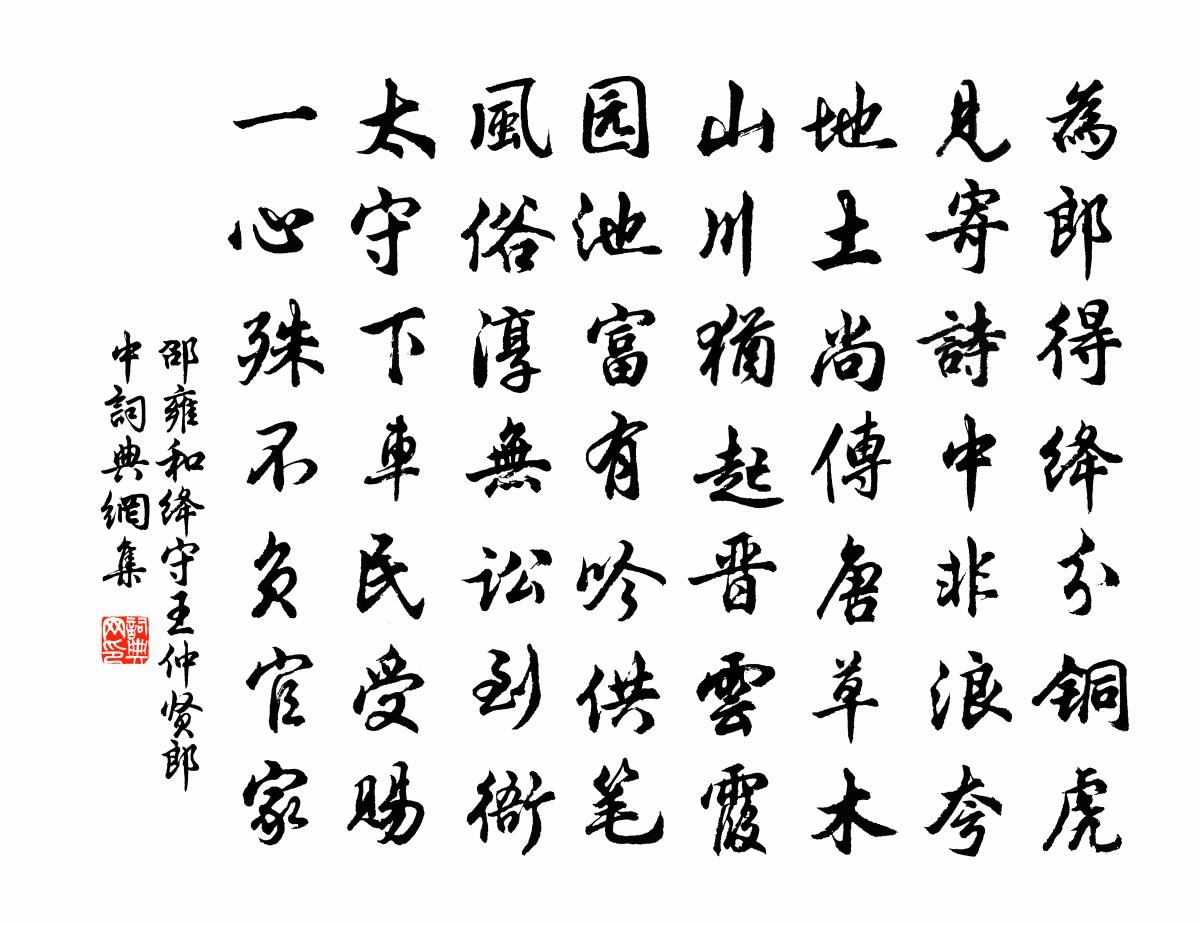 為郎得绛分铜虎
見寄詩中非浪夸
地土尚傳唐草木
山川猶起晋雲霞
园池富有吟供笔
風俗淳無訟到衙
太守下車民受赐
一心殊不负官家
邵雍和绛守王仲贤郎
中詞典網集
詞典
网印